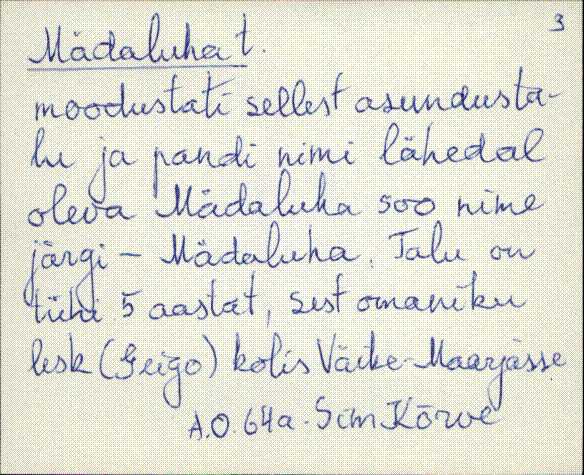 3
Mädaluha t.
moodustati sellest asundusta-
lu ja pandi nimi lähedal
oleva Mädaluha soo nime
järgi – Mädaluha. Talu on
tühi 5 aastat, sest omaniku
lesk (Geigo) kolis Väike-Maarjasse
A.O. 64a. Siim Kõrve